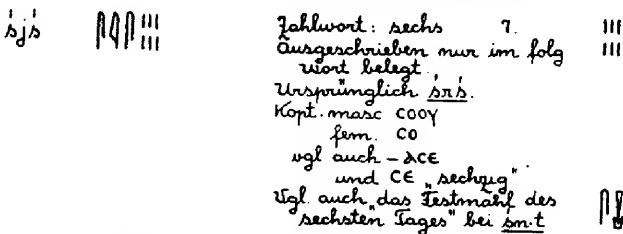 śjś 𓋴𓇋𓋴𓏿 Zahlwort: sechs 7. 𓏿
Ausgeschrieben nur im folg
wort belegt.
Ursprünglich śrś.
Kopt. masc ⲥⲟⲟⲩ
fem. ⲥⲟ
vgl auch – ⲁⲥⲉ
und ⲥⲉ „sechzig"
Vgl. auch „das Festmahl des
sechsten Tages" bei śn·t